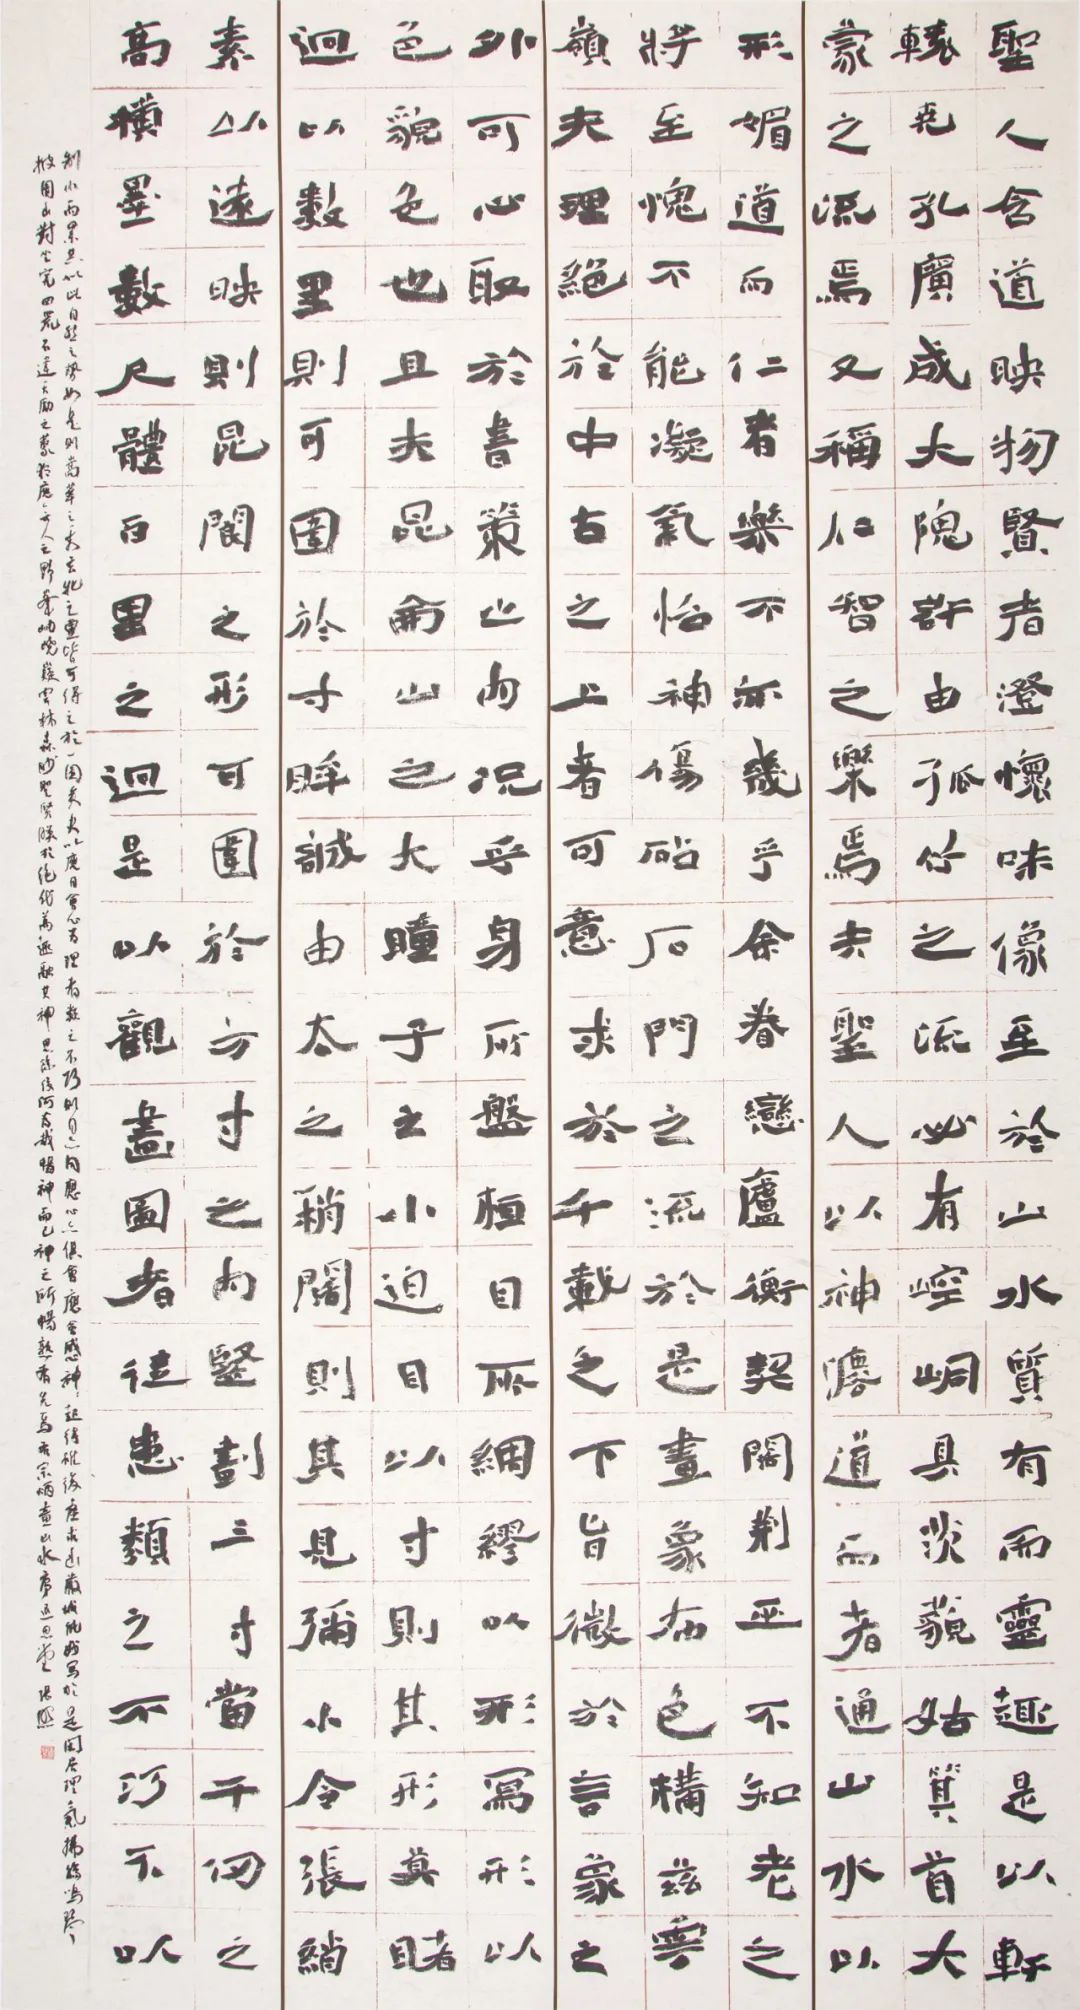 聖人含道映物賢者澄懷味像至於山水質有而靈趣是以軒
轅堯孔廣成大隗許由孤竹之流必有崆峒具茨藐姑箕首大
蒙之流焉又稱仁智之樂焉夫聖人以神灋道而者通山水以
形媚道而仁者樂不亦幾乎余眷戀廬衡契闊荊巫不知老之
將至愧不能凝氣怡神傷砧石門之流於是畫象布色構茲雲
嶺夫理絕於中古之上者可意求於千載之下旨微於言象之
外可心取於書策之內況乎身所盤桓目所綢繆以形寫形以
色貌色也且夫昆侖山之大瞳子之小迫目以寸則其形莫睹
迥以數里則可圍於寸眸誠由太之稍闊則其見彌小今張綃
素以遠映則昆閬之形可圍於方寸之內豎劃三寸當千仞之
高橫墨數尺體百里之迥是以觀畫圖者徒患類之不巧不以
制小而累其似此自然之勢如是則嵩華之秀玄牝之靈皆可得之於一圖矣夫以應目會心為理者類之不巧則目亦同應心亦俱會應會感神、超理得雖復虛求幽巖誠能妙寫於是閑居理氣拂觴鳴琴
披圖幽對坐究四荒不違天勵之藂獨應無人之野峰岫嶢嶷雲林森渺聖賢映於絕代萬趣融其神思余復何為哉暢神而已神之所暢孰有先焉右宗炳畫山水序